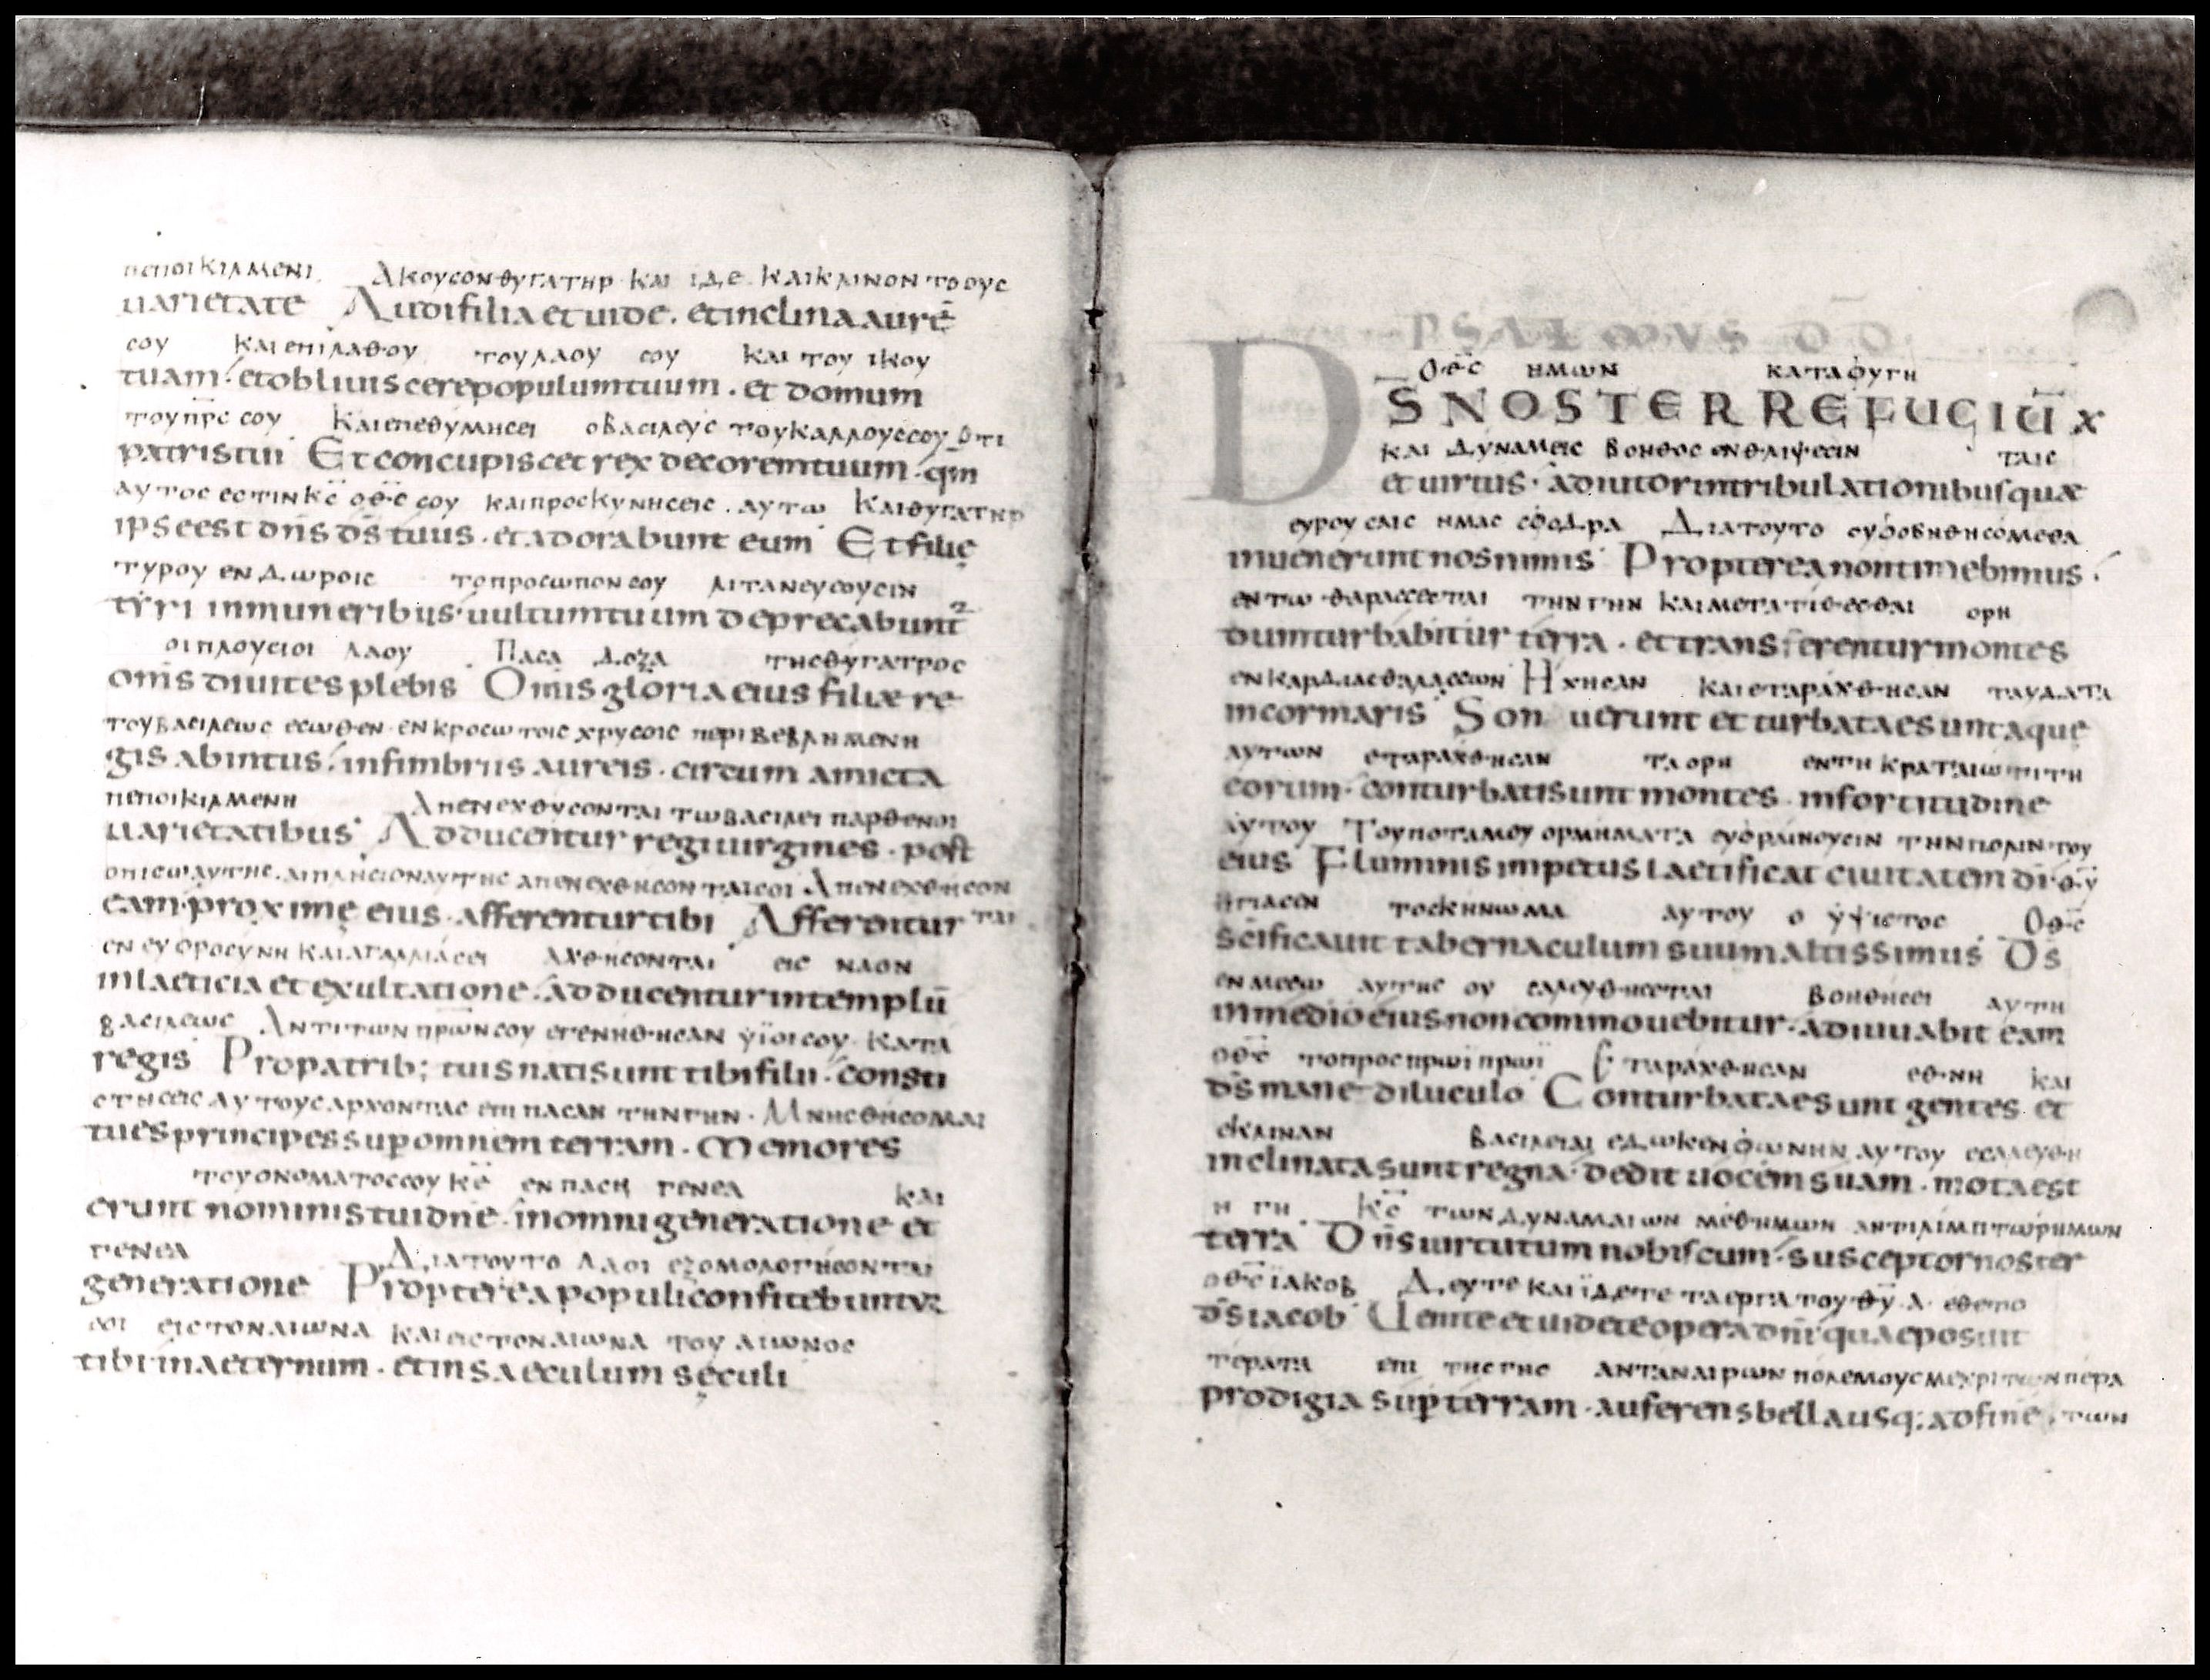 πεποικιλμενι Ακουσον θυγατηρ και ιδε και κλινον το ους
uarietate Audi filia et uide · et inclina aurē
σου και επιλαθου του λαου σου και του ικου
tuam · et obliuiscere populum tuum · et domum
του π̅ρ̅ς σου Και επεθυμησει ο βασιλευς του καλλους σου οτι
patris tui Et concupiscet rex decorem tuum · qm̅
αυτος εστιν κ̅ς̅ ο θ̅ς̅ σου και προσκυνησεις · αυτω Και θυγατηρ
ipse est dn̅s ds̅ tuus · et adorabunt eum Et filię
τυρου εν δωροις το προσωπον σου λιτανευσουσιν
tyri in muneribus · uultum tuum deprecabunt²
οι πλουσιοι λαου Πασα δοξα της θυγατρος
om̅s diuites plebis Om̅s gloria eius filiæ re
του βασιλεως εσωθεν · εν κροσωτοις χρυσοις περιβεβλημενη
gis abintus · in fimbriis aureis · circum amicta
πεποικιλμενη Απενεχθυσονται τω βασιλει παρθενοι
uarietatibus Adducentur regi uirgines · post
οπισω αυτης · αι πλησιον αυτης απενεχθησονται σοι Απενεχθησον
eam · proximę eius · afferentur tibi Afferentur ται
εν ευφροσυνη και αγαλλιασει αχθησονται εις ναον
in laeticia et exultatione · adducentur in templū
βασιλεως Αντι των π̅ρ̅ων σου εγενηθησαν ϋϊοι σου · κατα
regis Pro patrib; tuis nati sunt tibi filii · consti
στησεις αυτους αρχοντας επι πασαν την γην · Μνησθησομαι
tues principes sup omnem terram · Memores
του ονοματος σου κ̅ε̅ εν παση γενεα και
erunt nominis tui dn̅e · in omni generatione et
γενεα Δια τουτο λαοι εξομολογησονται
generatione Propterea populi confitebuntur
σοι εις τον αιωνα και εις τον αιωνα του αιωνος
tibi in aeternum · et in saeculum sęculi
PSALMUS DD
Ο θ̅ς̅ ημων καταφυγη
DS̅ NOSTER REFUGIŪ X
και δυναμεις βοηθος εν θλιψεσιν ταις
et uirtus · adiutor in tribulationibus quæ
ευρουσαις ημας σφοδρα Δια τουτο ου φοβηθησομεθα
inuenerunt nos nimis Propterea non timebimus ·
εν τω θαρασσεσται την γην και μετατιθεσθαι ορη
dum turbabitur terra · et transferentur montes
εν καρδιας θαλασσων Ηχησαν και εταραχθησαν τα υδατα
in cor maris Sonuerunt et turbatae sunt aquę
αυτων εταραχθησαν τα ορη εν τη κραταιωτιτη
eorum · conturbati sunt montes · in fortitudine
αυτου Του ποταμου ορμηματα ευφραινουσιν την πολιν του
eius Fluminis impetus laetificat ciuitatem di̅ θ̅υ̅
ηγιασεν το σκηνωμα αυτου ο ϋψιστος Ο θ̅ς̅
sc̅ificauit tabernaculum suum altissimus Ds̅
εν μεσω αυτης ου σαλευθησεται βοηθησει αυτη
in medio eius non commouebitur · adiuuabit eam
ο θ̅ς̅ το προς πρωϊ πρωϊ Εταραχθησαν εθνη και
ds̅ mane diluculo Conturbatae sunt gentes et
εκλιναν βασιλειαι εδωκεν φωνην αυτου εσαλευθη
inclinata sunt regna · dedit uocem suam · mota est
η γη Κ̅ς̅ των δυναμαιων μεθ ημων αντιλιμπτωρ ημων
terra Dn̅s uirtutum nobiscum · susceptor noster
ο θ̅ς̅ ϊακοβ Δευτε και ϊδετε τα εργα του θ̅υ̅ · α · εθετο
ds̅ iacob Uenite et uidete opera dn̅i quae posuit
τερατα επι της γης ανταναιρων πολεμους μεχρι των περα
prodigia sup terram · auferens bella usq; ad finē των